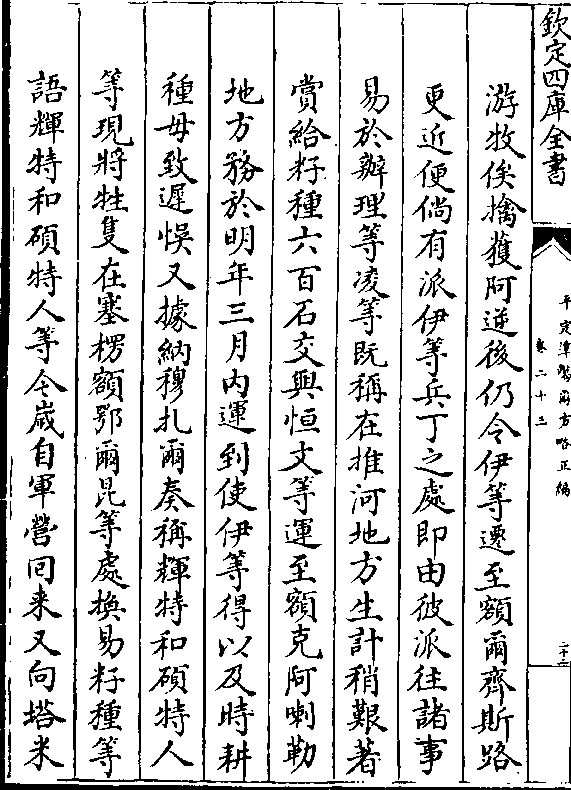 欽定四庫全書
平定準噶爾方略正編
卷二十三
二十二
游牧俟擒獲阿逆後仍令伊等遷至額爾齊斯路
更近便倘有派伊等兵丁之處即由彼派往諸事
易於辦理等凌等既稱在推河地方生計稍艱著
賞給籽種六百石交與恒文等運至額克阿喇勒
地方務於明年三月內運到使伊等得以及時耕
種毋致遲悞又據納穆扎爾奏稱輝特和碩特人
等現將牲隻在塞楞額鄂爾昆等處換易籽種等
語輝特和碩特人等今歲自軍營回来又向塔米